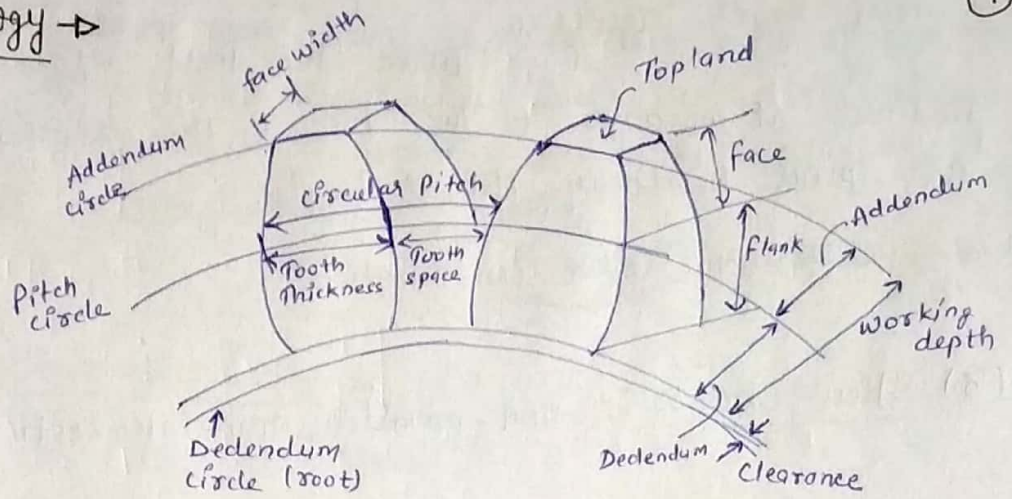 gy →
face width
Topland
Addendum
circle
face
Circular Pitch
Addendum
flank
Tooth
Thickness
Tooth
space
Pitch
circle
working
depth
Dedendum
circle (root)
Dedendum
Clearance